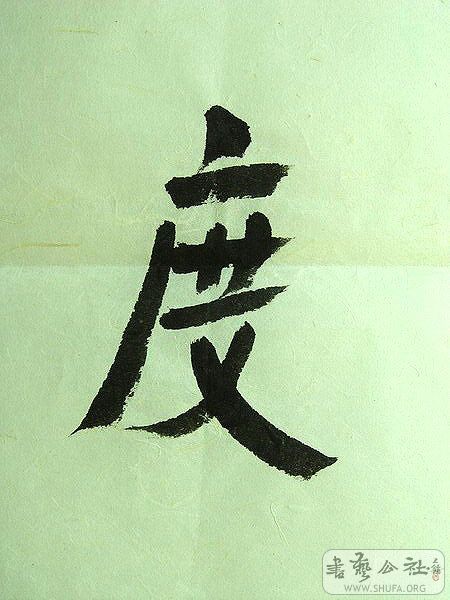 度
書藝公社
WWW.SHUFA.ORG